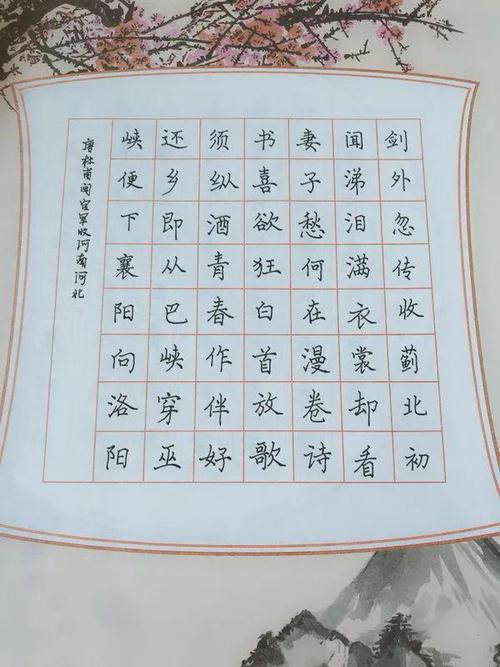 剑外忽传收蓟北初
闻涕泪满衣裳却看
妻子愁何在漫卷诗
书喜欲狂白首放歌
须纵酒青春作伴好
还乡即从巴峡穿巫
峡便下襄阳向洛阳
唐杜甫闻官军收河南河北